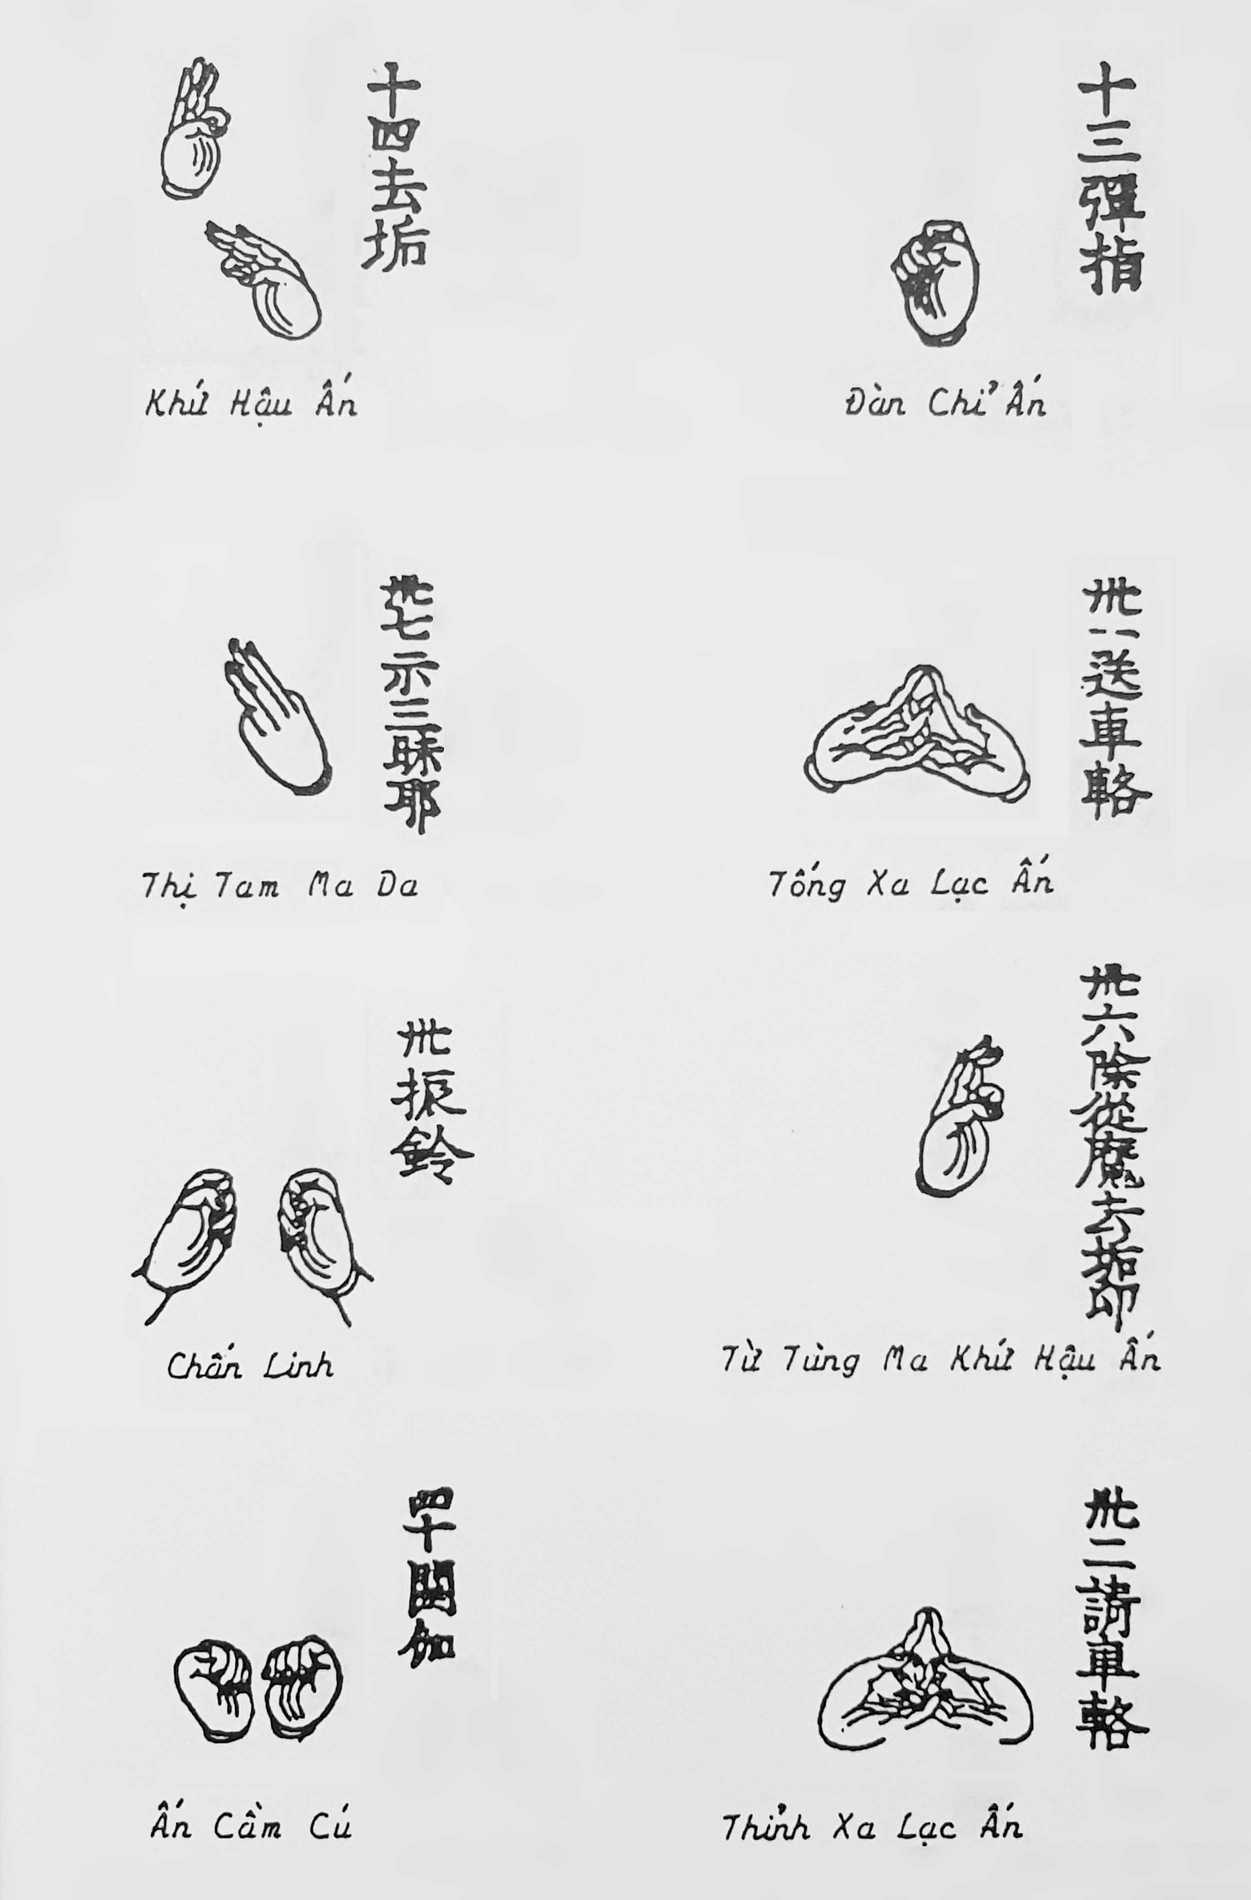 十三彈指
Đàn Chỉ Ấn
十四去垢
Khứ Hậu Ấn
卅一送車輅
Tống Xa Lạc Ấn
卅七示三昧耶
Thị Tam Ma Da
卅六除從魔去垢印
Từ Tùng Ma Khứ Hậu Ấn
卅振鈴
Chấn Linh
卅二請車輅
Thỉnh Xa Lạc Ấn
四十閼伽
Ấn Cầm Cú